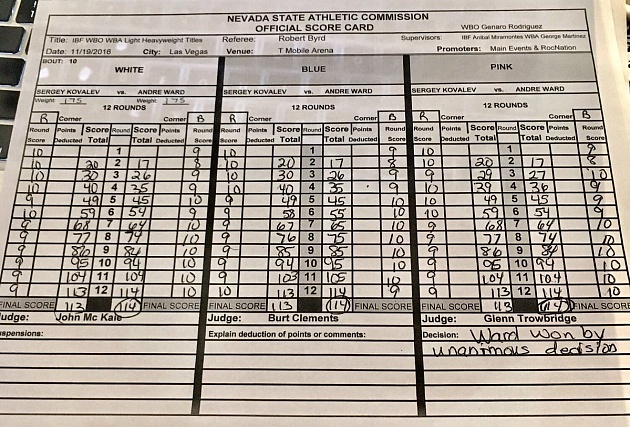 NEVADA STATE ATHLETIC COMMISSION
OFFICIAL SCORE CARD
WBO Genaro Rodriguez
Title: IBF WBO WBA Light Heavyweight Titles Referee: Robert Byrd Supervisors: IBF Anibal Miramontes WBA George Martinez
Date: 11/19/2016 City: Las Vegas Venue: T Mobile Arena Promoters: Main Events & RocNation
BOUT: 10
WHITE BLUE PINK
SERGEY KOVALEV vs. ANDRE WARD SERGEY KOVALEV vs. ANDRE WARD SERGEY KOVALEV vs. ANDRE WARD
Weight 175 Weight 175
12 ROUNDS 12 ROUNDS 12 ROUNDS
R Corner Corner B R Corner Corner B R Corner Corner B
Round Points Score Round Score Points Round Round Points Score Round Score Points Round Round Points Score Round Score Points Round
Score Deducted Total Total Deducted Score Score Deducted Total Total Deducted Score Score Deducted Total Total Deducted Score
10 1 9 10 1 9 10 1 9
10 20 2 17 8 10 20 2 17 8 10 20 2 17 8
10 30 3 26 9 10 30 3 26 9 9 29 3 27 10
10 40 4 35 9 10 40 4 35 9 10 39 4 36 9
9 49 5 45 10 9 49 5 45 10 10 49 5 45 9
10 59 6 54 9 9 58 6 55 10 10 59 6 54 9
9 68 7 64 10 9 67 7 65 10 9 68 7 64 10
9 77 8 74 10 9 76 8 75 10 9 77 8 74 10
9 86 9 84 10 9 85 9 85 10 9 86 9 84 10
9 95 10 94 10 9 94 10 95 10 9 95 10 94 10
9 104 11 104 10 9 103 11 105 10 9 104 11 104 10
9 113 12 114 10 10 113 12 114 9 9 113 12 114 10
FINAL SCORE 113 114 FINAL SCORE FINAL SCORE 113 114 FINAL SCORE FINAL SCORE 113 114 FINAL SCORE
Judge: John Mc Kaie Judge: Burt Clements Judge: Glenn Trowbridge
uspensions: Explain deduction of points or comments: Decision: Ward won by
unanimous decision